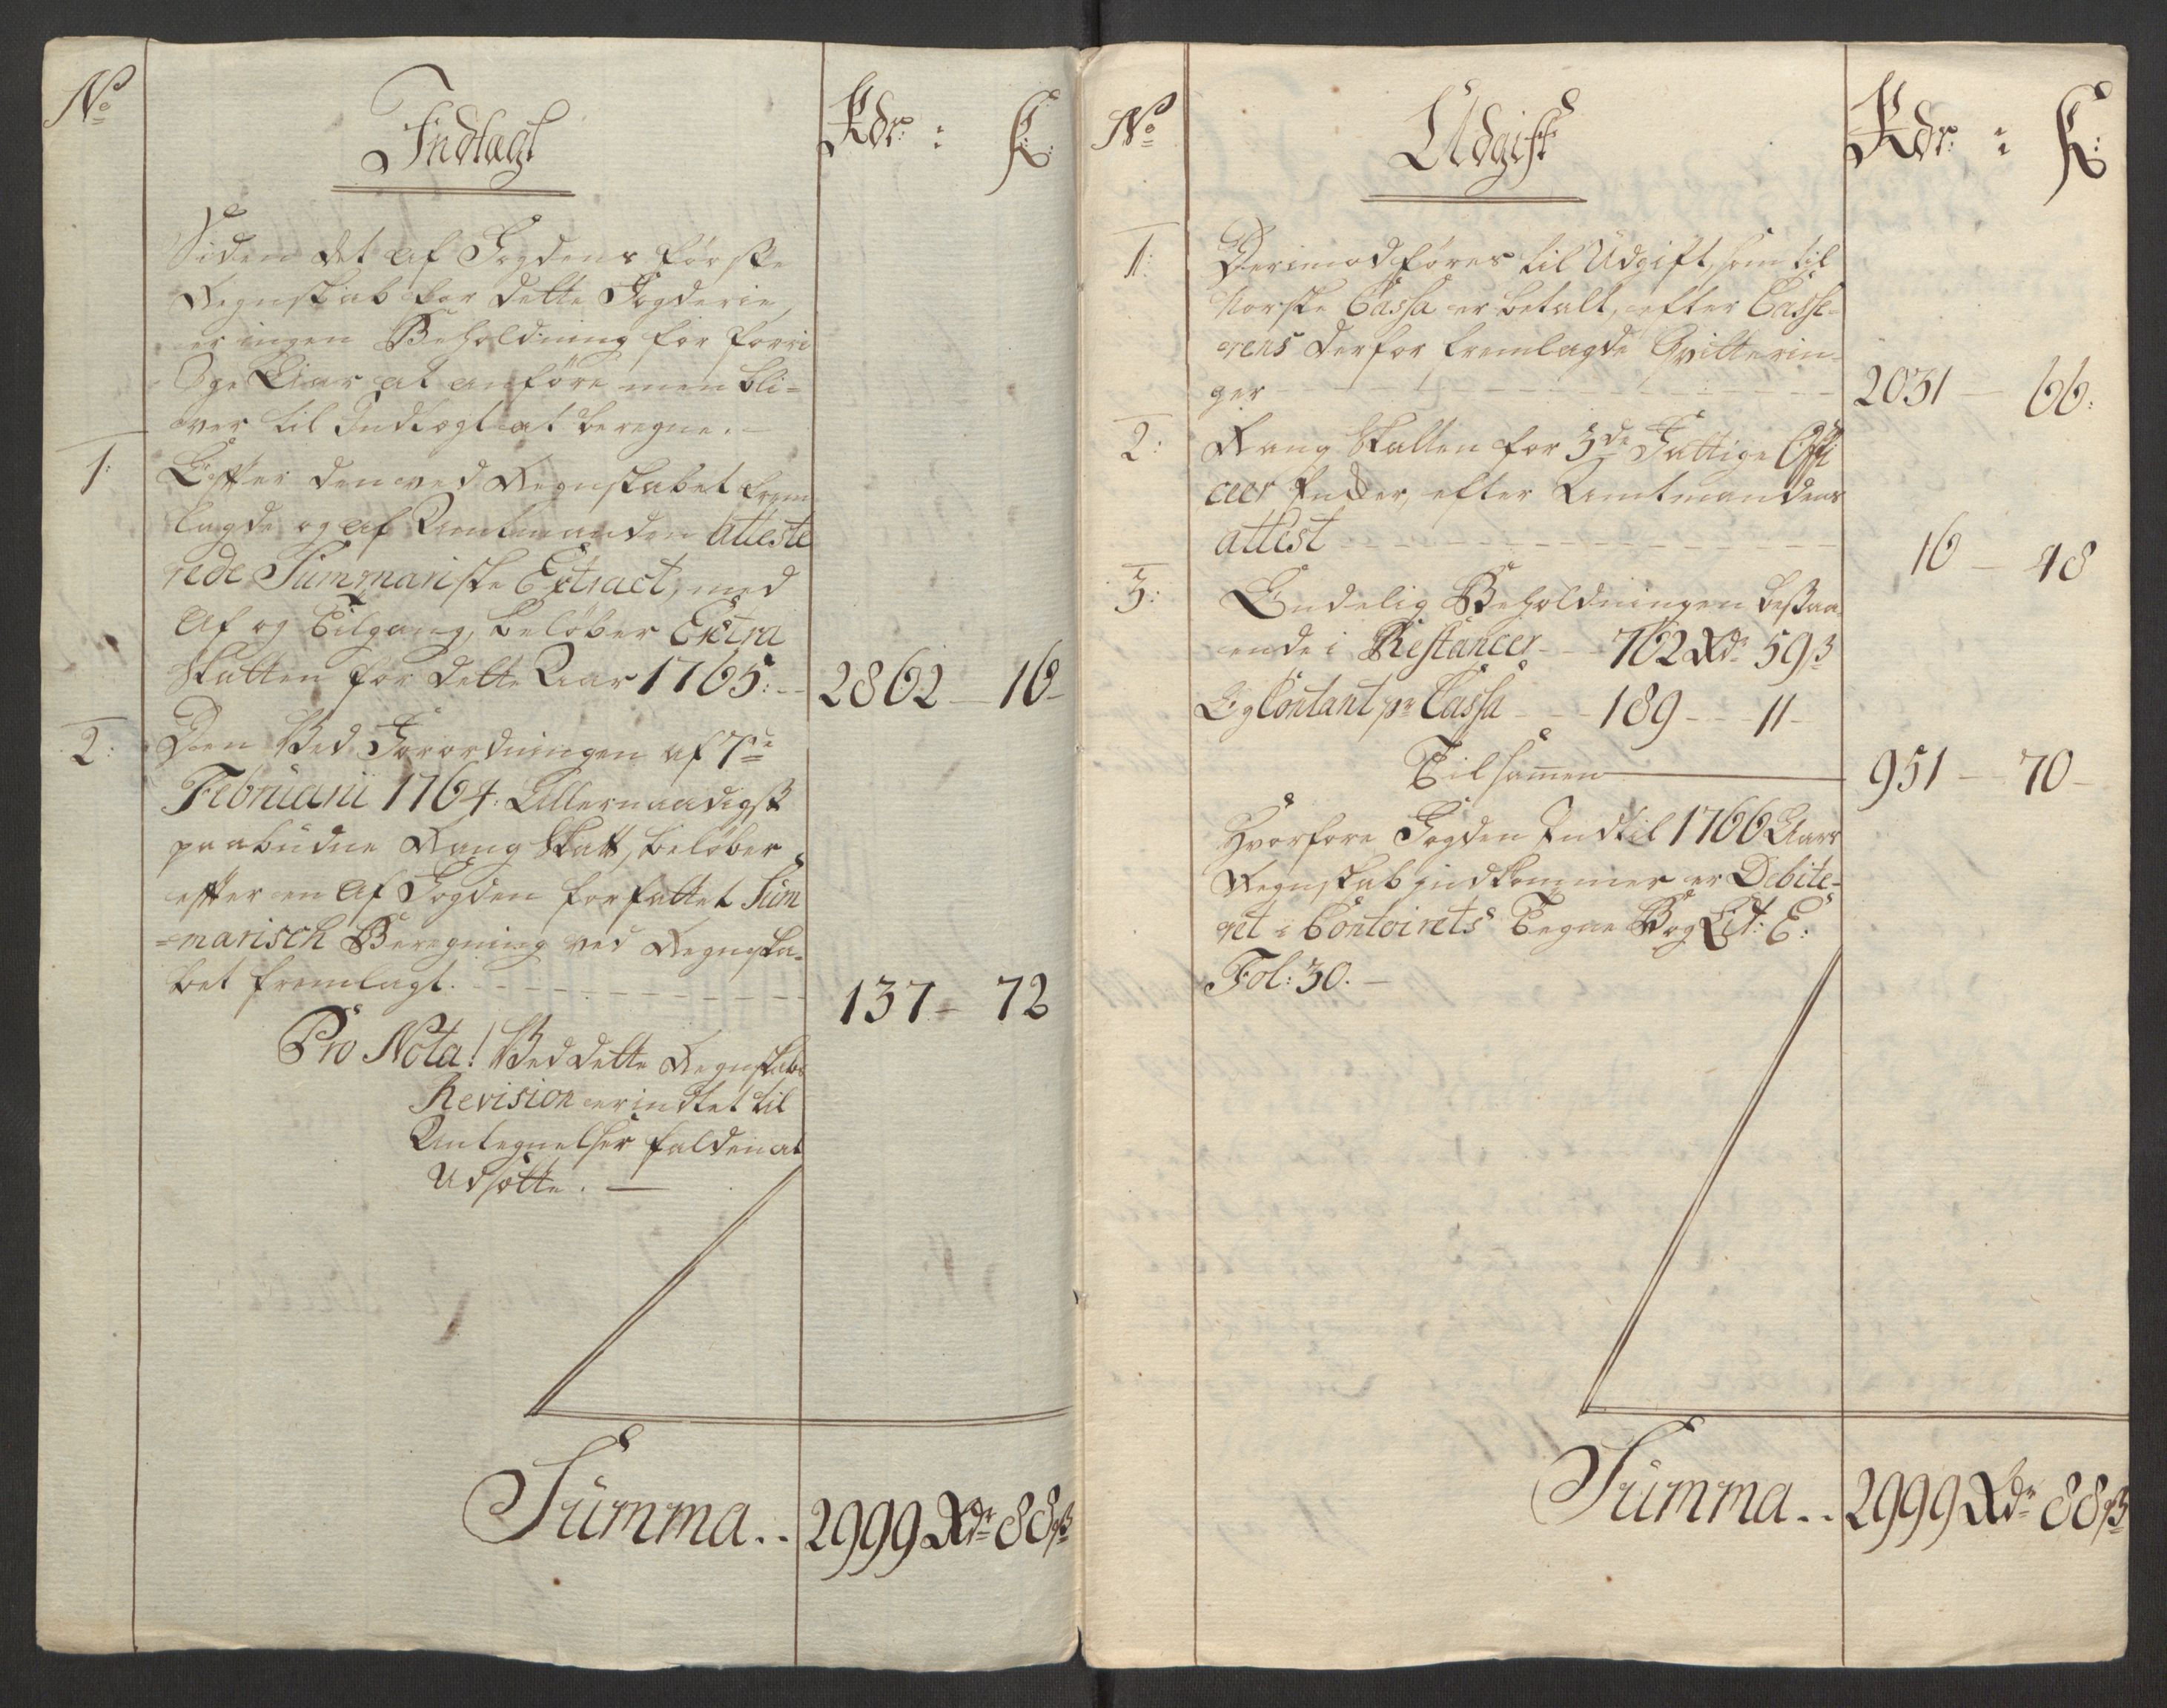 No
Indtægt
Rdr: ß:
Siden det af Fogdens første
Regnskab for dette Fogderie,
er ingen Beholdning for forri
ge Aar at anføre men bli=
ver til Indtægt at beregne. -
1: Efter den ved Regnskabet frem
lagde og af Amtmanden atteste
rede Summariske Extract, med
Af og Tilgang, beløber Extra
Skatten for dette Aar 1765: - - 2862 - 16 -
2: Den Ved Forordningen af 7de
Februarii 1764. Allernaadigst
paabudne Rang Skatt, beløber
efter en af Fogden forfattet Sum
=marisch Beregning ved Regnska=
bet fremlagt. - - - 137 - 72
Pro Nota! Ved dette Regnskabs
Revision er indtet til
Antegnelser falden at
Udsætte. -
Summa. . 2999 Rdr 88 ß
No
Udgift
Rdr: ß:
1: Derimod føres til Udgift, som til
Norske Cassa er betalt, efter Casse=
rens derfor fremlagde Qvitterin=
ger - - - 2031 - 66:
2: Rang Skatten for 3de Fattige Offi
ceer Enker, efter Amtmandens
attest - - - 16 - 48
3: Endelig Beholdningen bestaa
ende i Restancer - - 762 Rdr 59 ß
Og Contant pr Cassa - - - 189 - - 11 -
Tilsammen - 951 - 70 -
Hvorfore Fogden Indtil 1766 Aars
Regnskab indkommer er Debite=
ret i Contoirets Tegne Bog Lit: E:
Fol: 30. -
Summa. . 2999 Rdr 88 ß